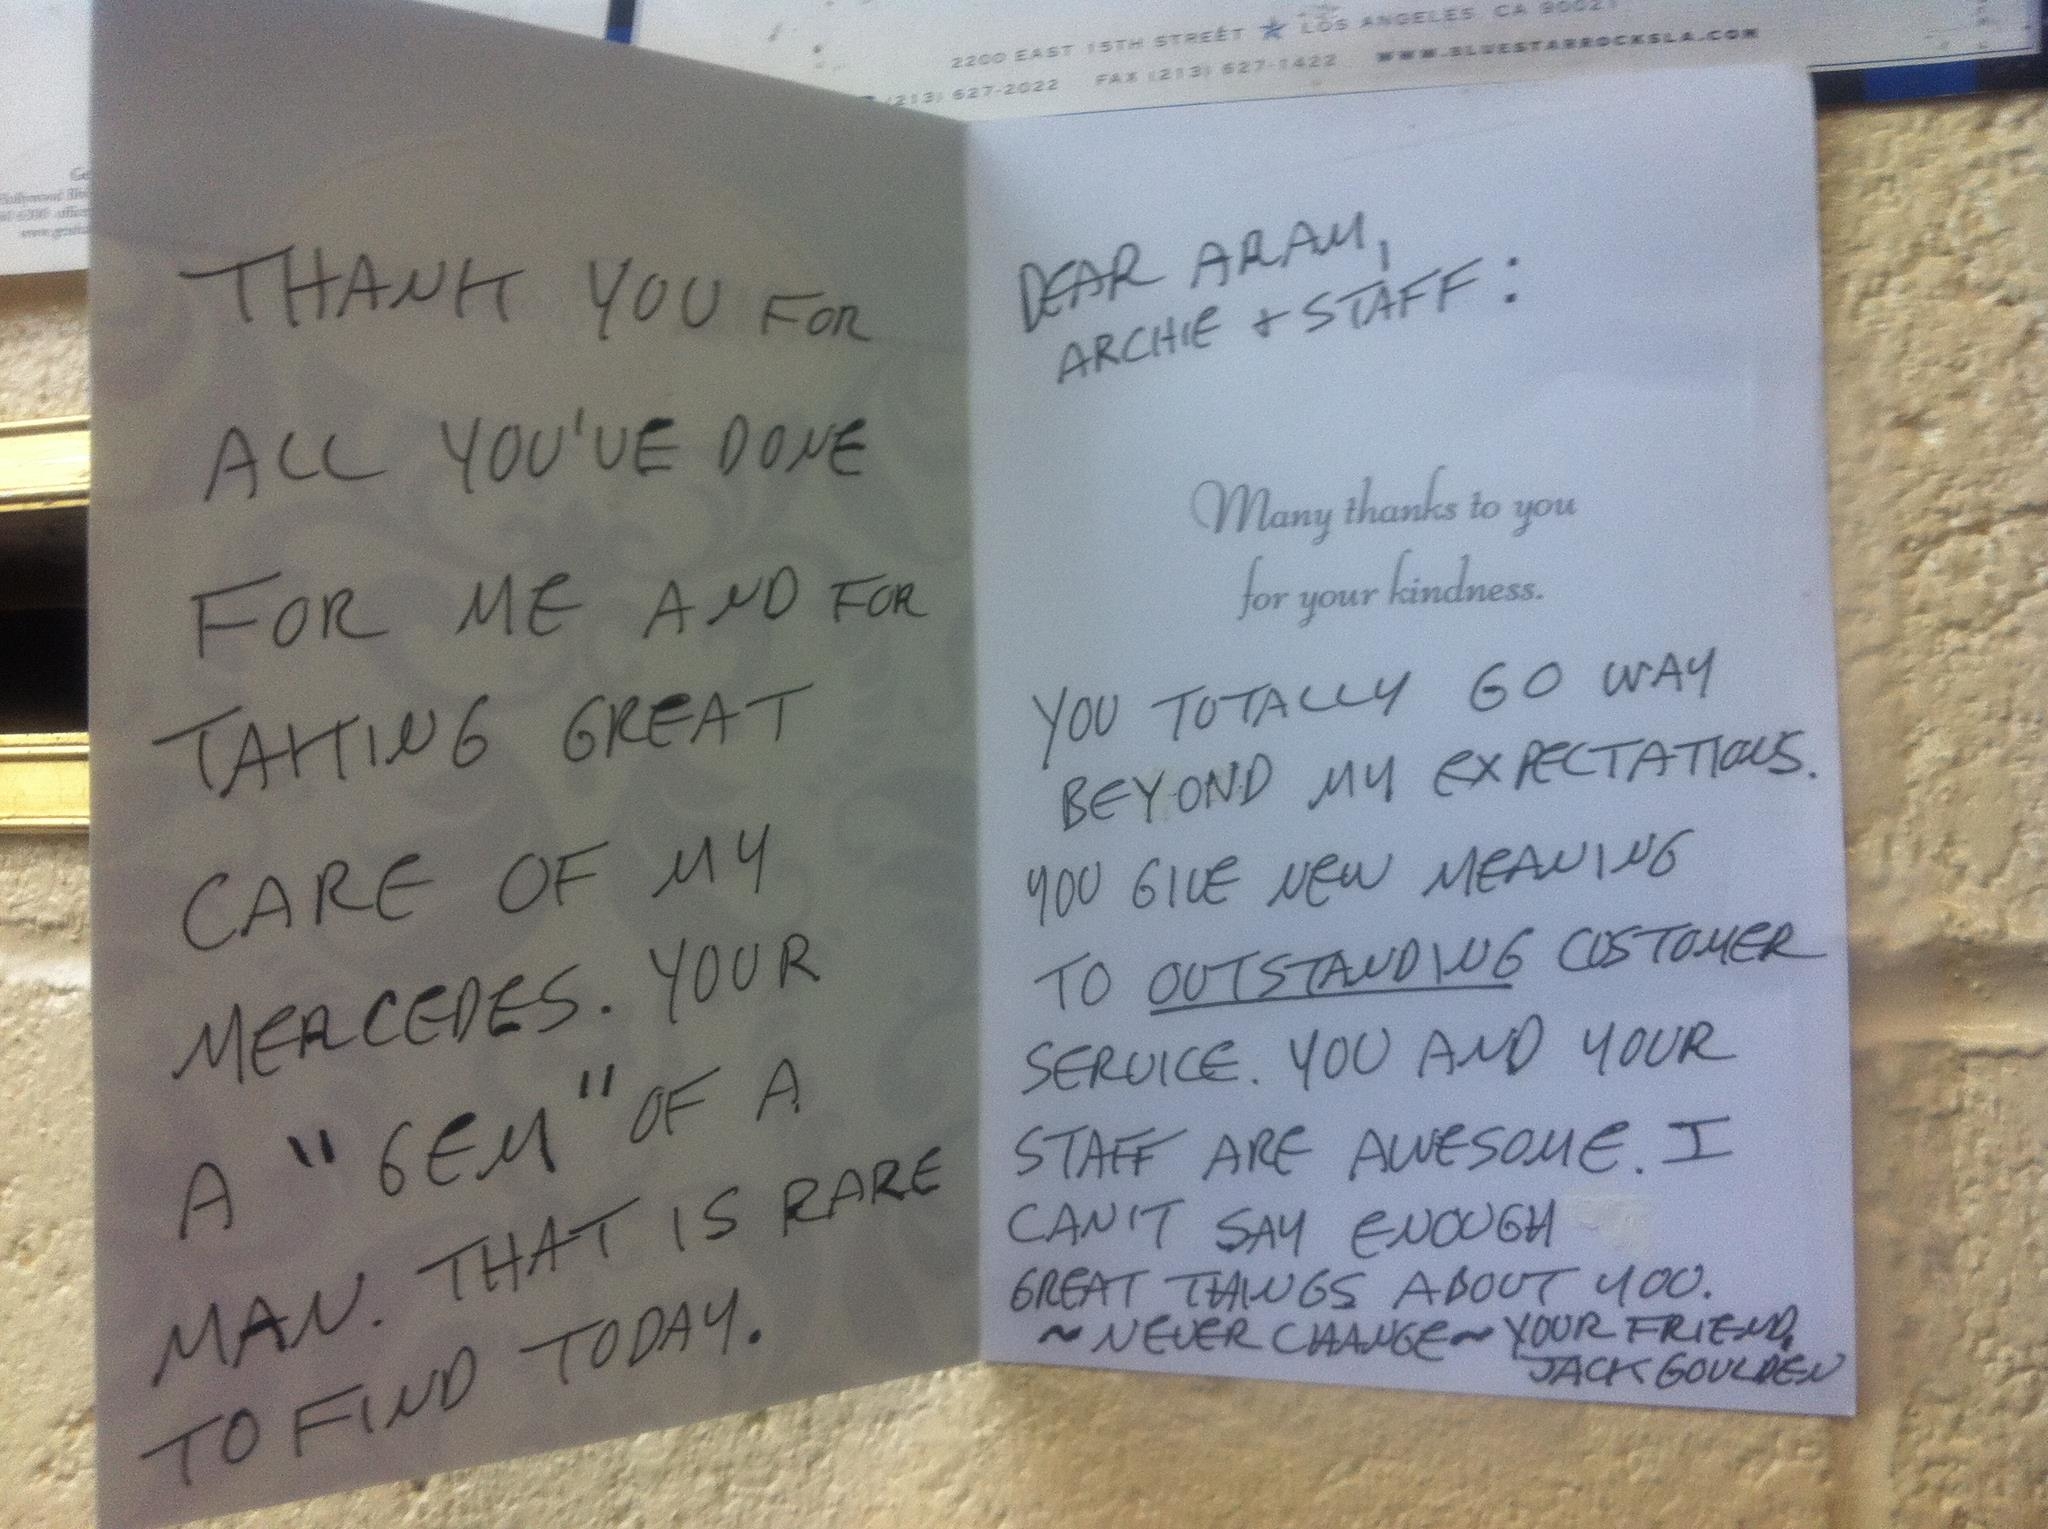 2200 EAST 15TH STREET ★ LOS ANGELES, CA 90021
(213) 627-2022 FAX (213) 627-1422 WWW.BLUESTARROCKSLA.COM
THANK YOU FOR
ALL YOU'VE DONE
FOR ME AND FOR
TAKING GREAT
CARE OF MY
MERCEDES. YOUR
A "GEM" OF A
MAN. THAT IS RARE
TO FIND TODAY.
DEAR ARAM,
ARCHIE + STAFF:
Many thanks to you
for your kindness.
YOU TOTALLY GO WAY
BEYOND MY EXPECTATIONS.
YOU GIVE NEW MEANING
TO OUTSTANDING CUSTOMER
SERVICE. YOU AND YOUR
STAFF ARE AWESOME. I
CAN'T SAY ENOUGH
GREAT THINGS ABOUT YOU.
~ NEVER CHANGE ~ YOUR FRIEND,
JACK GOULDEN